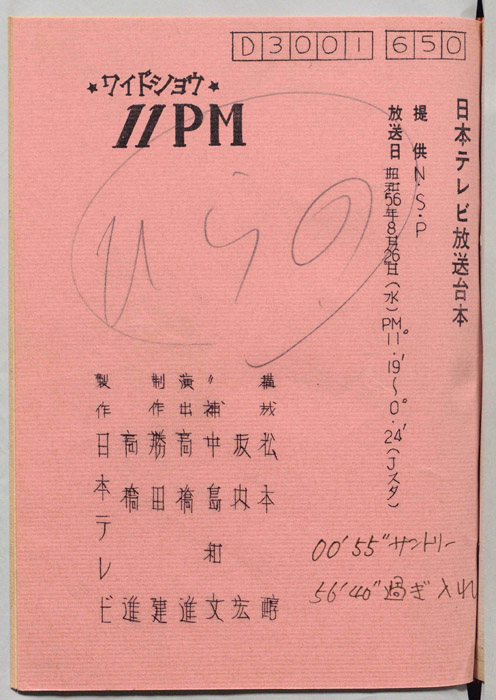 D3001 650
日本テレビ放送台本
提供 N.S.P
放送日 昭和56年8月26日(水)PM11°.19'〜0°.24'(Jスタ)
★ワイドショウ★
11PM
ひらの
構成 松本 醇
坂内 宏
〃補 中島和文
演出 高橋 進
制作 勝田 建
高橋 進
製作 日本テレビ
00'55" サントリー
56'40" 過ぎ入れ